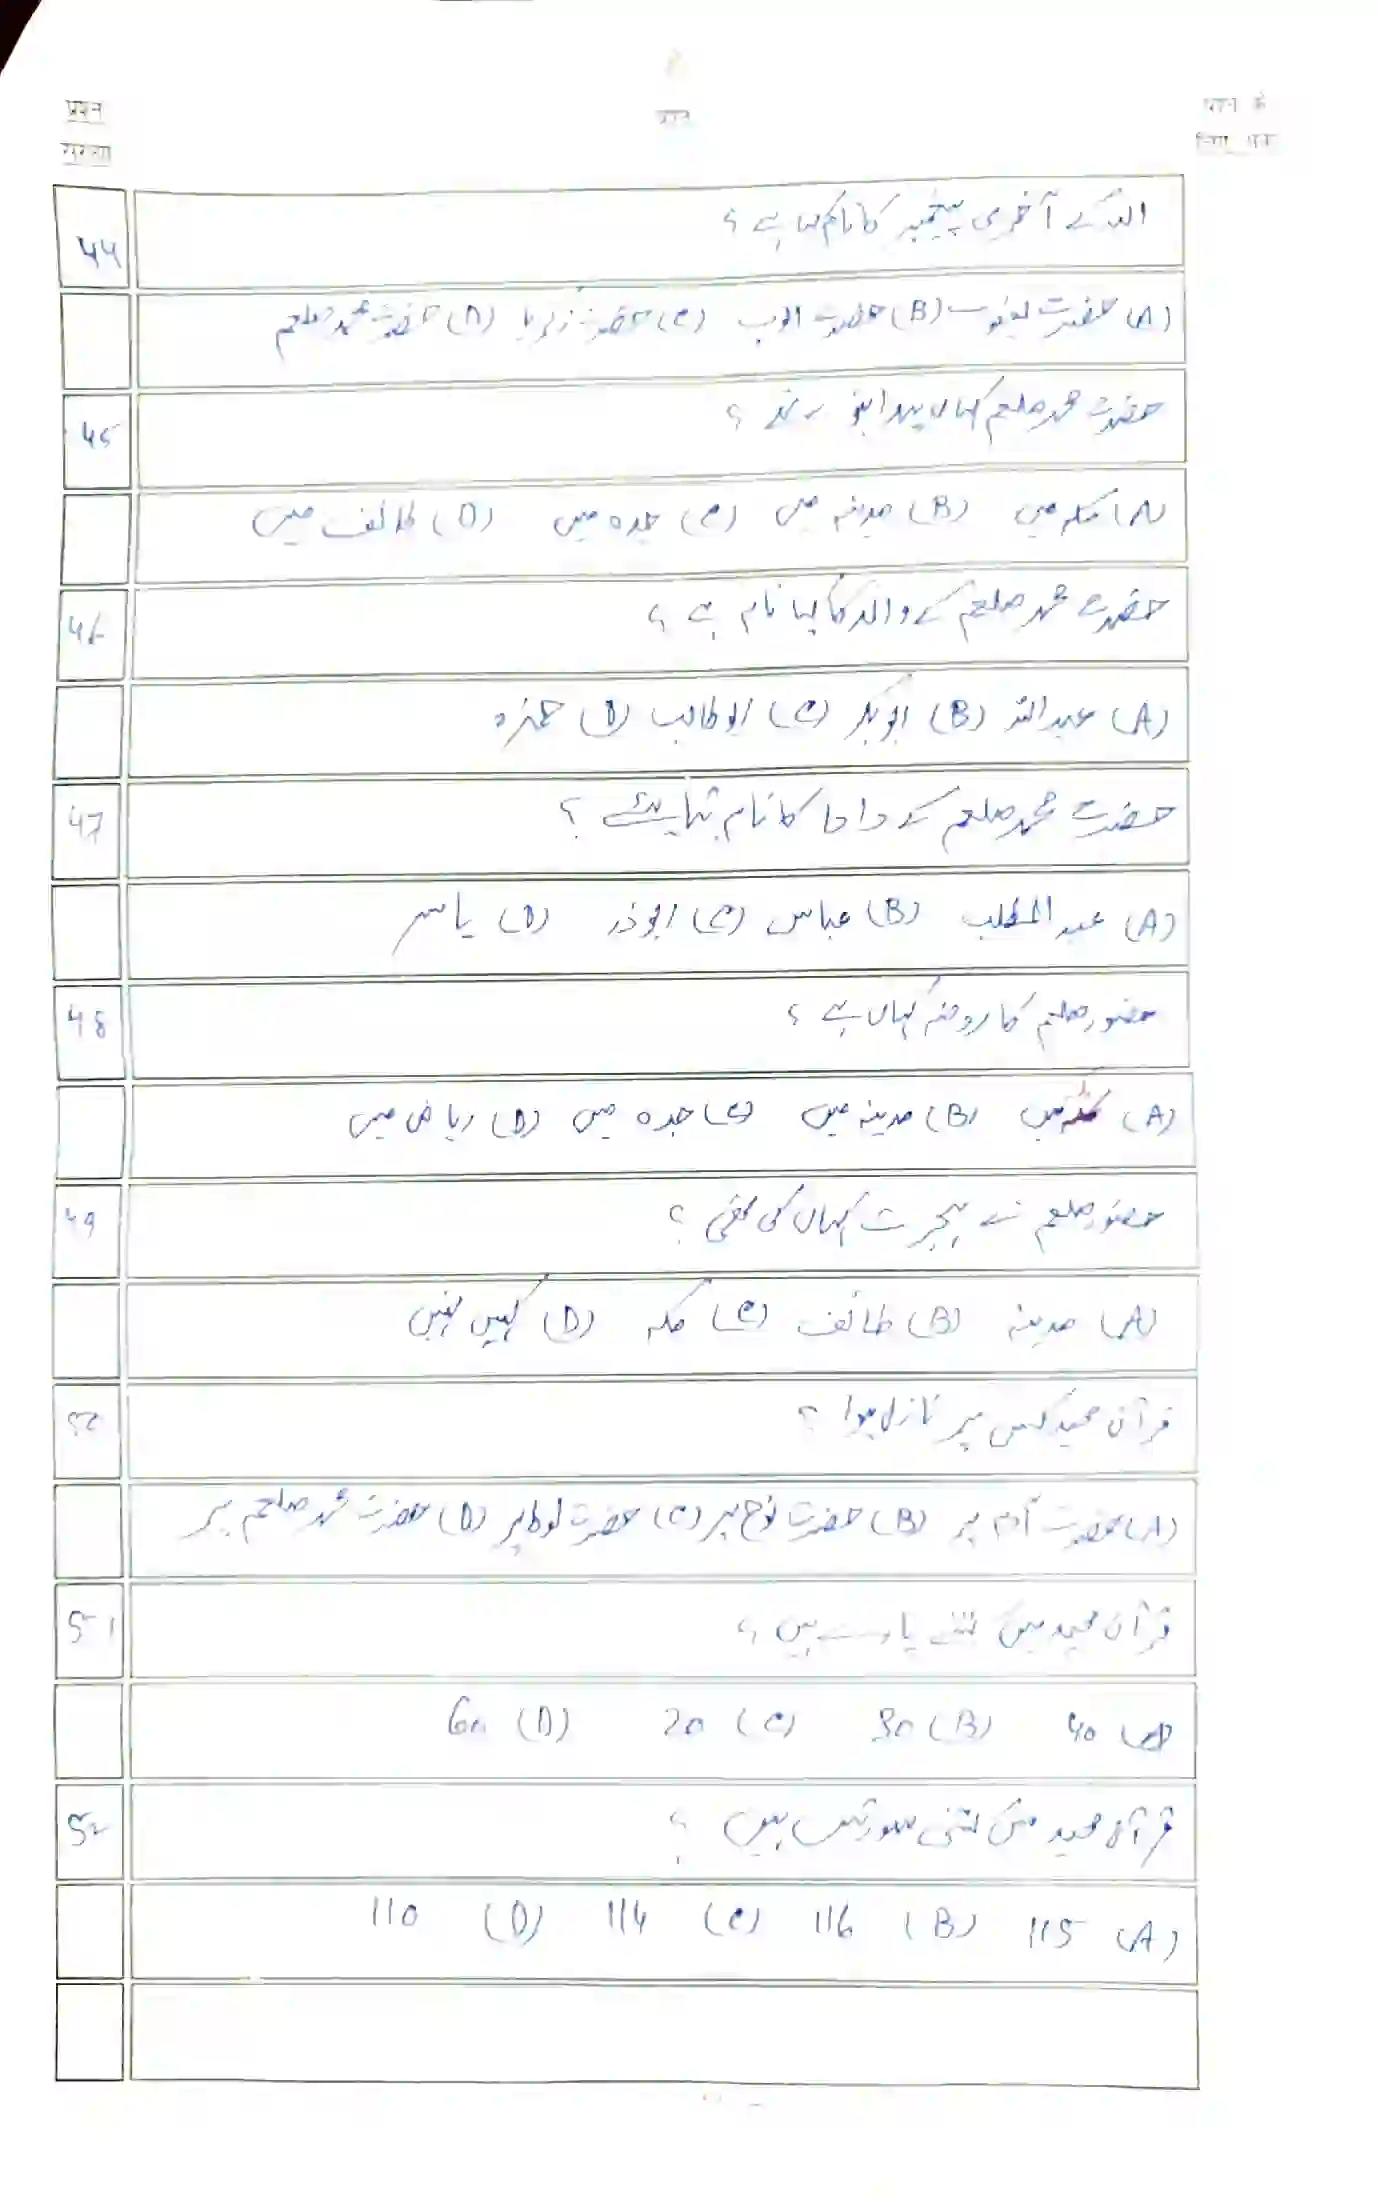 प्रश्न
संख्या
प्रश्न
प्रश्न के
लिए अंक
44 اللہ کے آخری پیغمبر کا نام کیا ہے ؟
(A) حضرت یعقوب (B) حضرت ایوب (C) حضرت زکریا (D) حضرت محمد صلعم
45 حضرت محمد صلعم کہاں پیدا ہوئے تھے ؟
(A) مکہ میں (B) مدینہ میں (C) جدہ میں (D) طائف میں
46 حضرت محمد صلعم کے والد کا کیا نام ہے ؟
(A) عبداللہ (B) ابوبکر (C) ابوطالب (D) حمزہ
47 حضرت محمد صلعم کے دادا کا نام بتایئے ؟
(A) عبدالمطلب (B) عباس (C) ابوذر (D) یاسر
48 حضور صلعم کا روضہ کہاں ہے ؟
(A) مکہ میں (B) مدینہ میں (C) جدہ میں (D) ریاض میں
49 حضور صلعم نے ہجرت کہاں کی تھی ؟
(A) مدینہ (B) طائف (C) مکہ (D) کہیں نہیں
50 قرآن مجید کس پر نازل ہوا ؟
(A) حضرت آدم پر (B) حضرت نوح پر (C) حضرت لوط پر (D) حضرت محمد صلعم پر
51 قرآن مجید میں کتنے پارے ہیں ؟
(A) 40 (B) 30 (C) 20 (D) 60
52 قرآن مجید میں کتنی سورتیں ہیں ؟
(A) 115 (B) 116 (C) 114 (D) 110